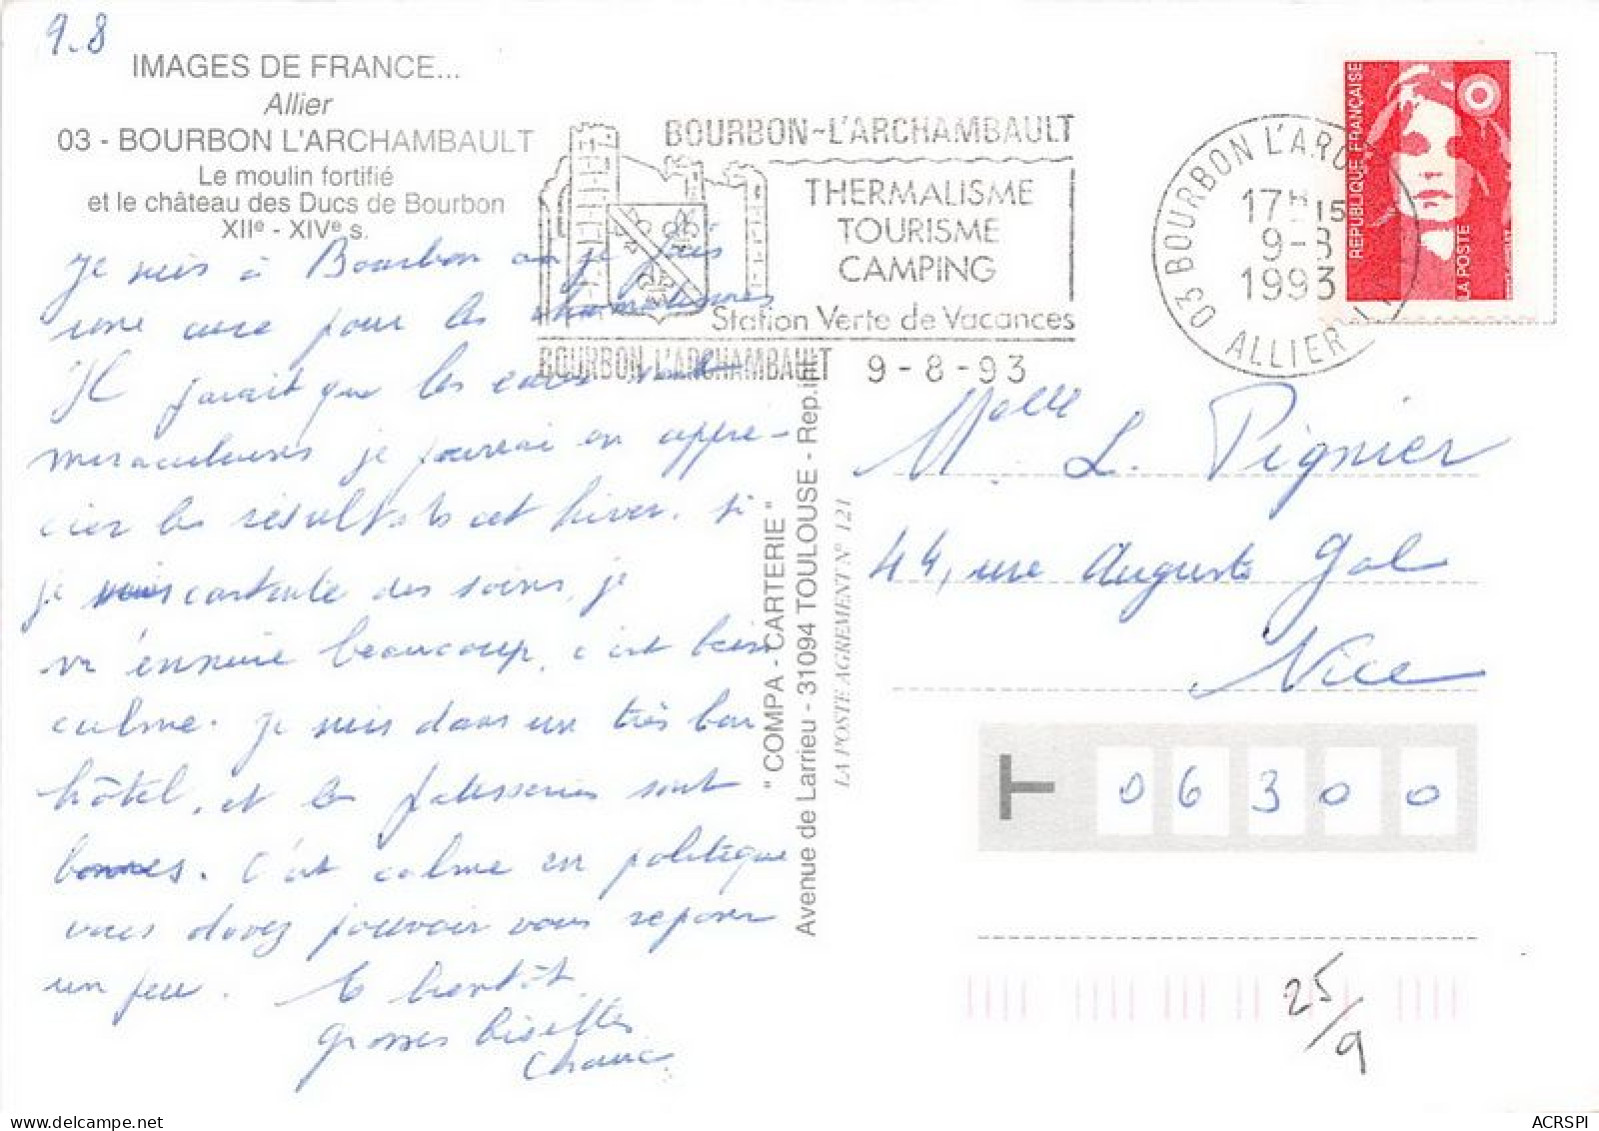 9.8
IMAGES DE FRANCE...
Allier
03 - BOURBON L'ARCHAMBAULT
Le moulin fortifié
et le château des Ducs de Bourbon
XIIe - XIVe s.
Je suis à Bourbon où je fais
une cure pour les rhumatismes
Il parait que les eaux sont
miraculeuses je pourrai en appré-
cier les résultats cet hiver. Si
je contente des soins, je
m'ennuie beaucoup, c'est bien
calme. Je suis dans un très bon
hôtel, et les patisseries sont
bonnes. C'est calme en politique
vous devez pouvoir vous reposer
un peu. A bientôt
grosses bises
BOURBON-L'ARCHAMBAULT
THERMALISME
TOURISME
CAMPING
Station Verte de Vacances
BOURBON L'ARCHAMBAULT 9-8-93
03 BOURBON L'ARCHAMBAULT
17H15
9-8
1993
ALLIER
REPUBLIQUE FRANÇAISE
LA POSTE
"COMPA - CARTERIE"
Avenue de Larrieu - 31094 TOULOUSE - Rep.int
LA POSTE AGREMENT N° 121
Melle L. Pignier
44, rue Auguste Gal
Nice
06300
25/9
delcampe.net
ACRSPI